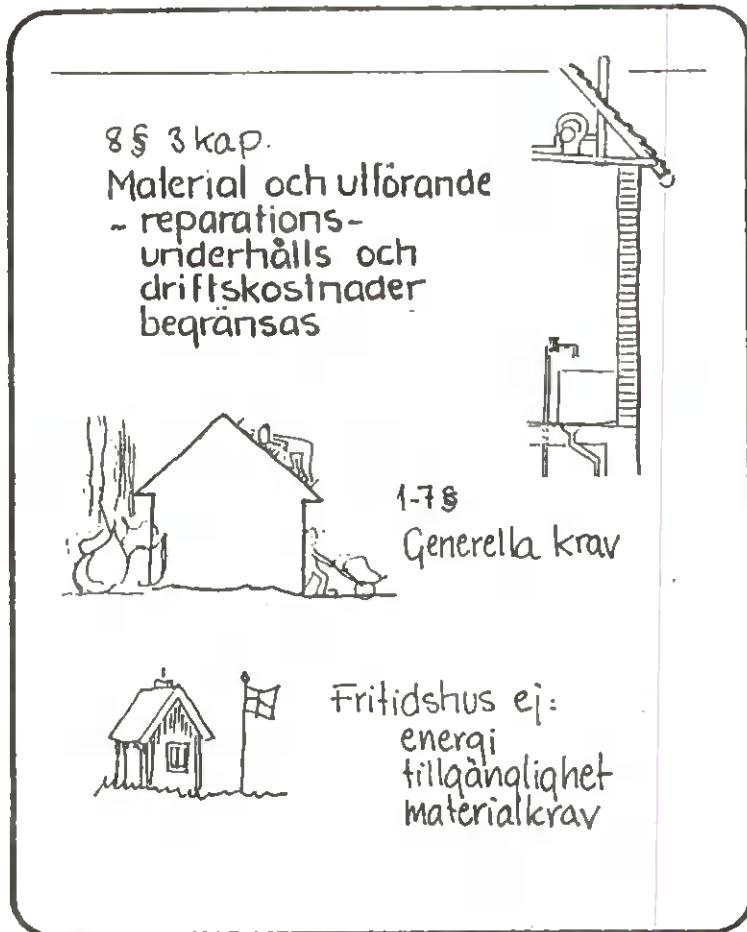 8§ 3 kap.
Material och utförande
- reparations-
underhålls och
driftskostnader
begränsas
1-7§
Generella krav
Fritidshus ej:
energi
tillgänglighet
materialkrav